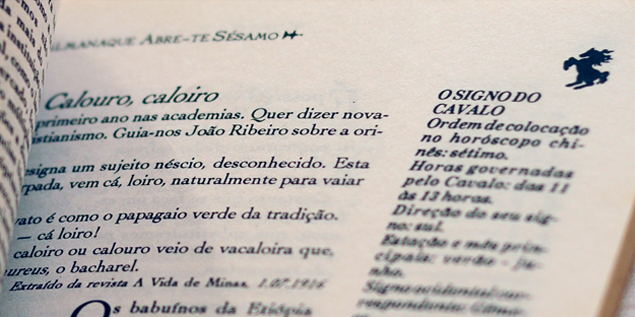 ALMANAQUE ABRE-TE SÉSAMO
Calouro, caloiro
primeiro ano nas academias. Quer dizer nova-
istianismo. Guia-nos João Ribeiro sobre a ori-
signa um sujeito néscio, desconhecido. Esta
pada, vem cá, loiro, naturalmente para vaiar
rato é como o papagaio verde da tradição.
— cá loiro!
caloiro ou calouro veio de vacaloira que,
ureus, o bacharel.
Extraído da revista A Vida de Minas, 1.07.1916
Os babuínos da Etiópia
O SIGNO DO
CAVALO
Ordem de colocação
no horóscopo chi-
nês: sétimo.
Horas governadas
pelo Cavalo: das 11
às 13 horas.
Direção do seu sig-
no: sul.
Estação e mês prin-
cipais: verão - ju-
nho.